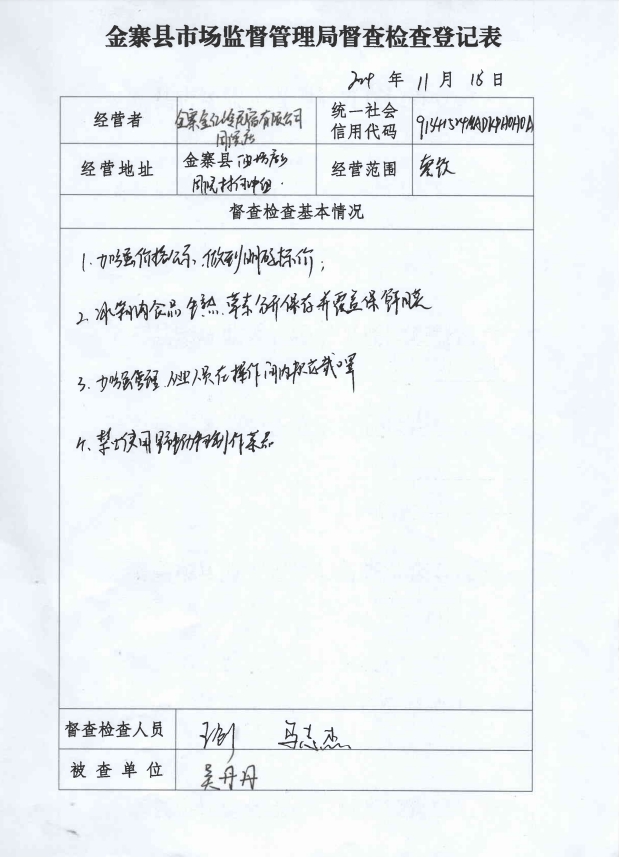 金寨县市场监督管理局督查检查登记表
2024 年 11 月 18 日
经营者
金寨 有限公司
统一社会
信用代码
经营地址
金寨县
经营范围
餐饮
督查检查基本情况
1. 加强价格公示, 做到明码标价;
2. 冰箱内食品生熟、荤素分开保存并覆盖保鲜膜
3. 加强管理 从业人员在操作间内 戴口罩
4、禁止使用野生动物制作菜品
督查检查人员
马志杰
被查单位
吴丹丹